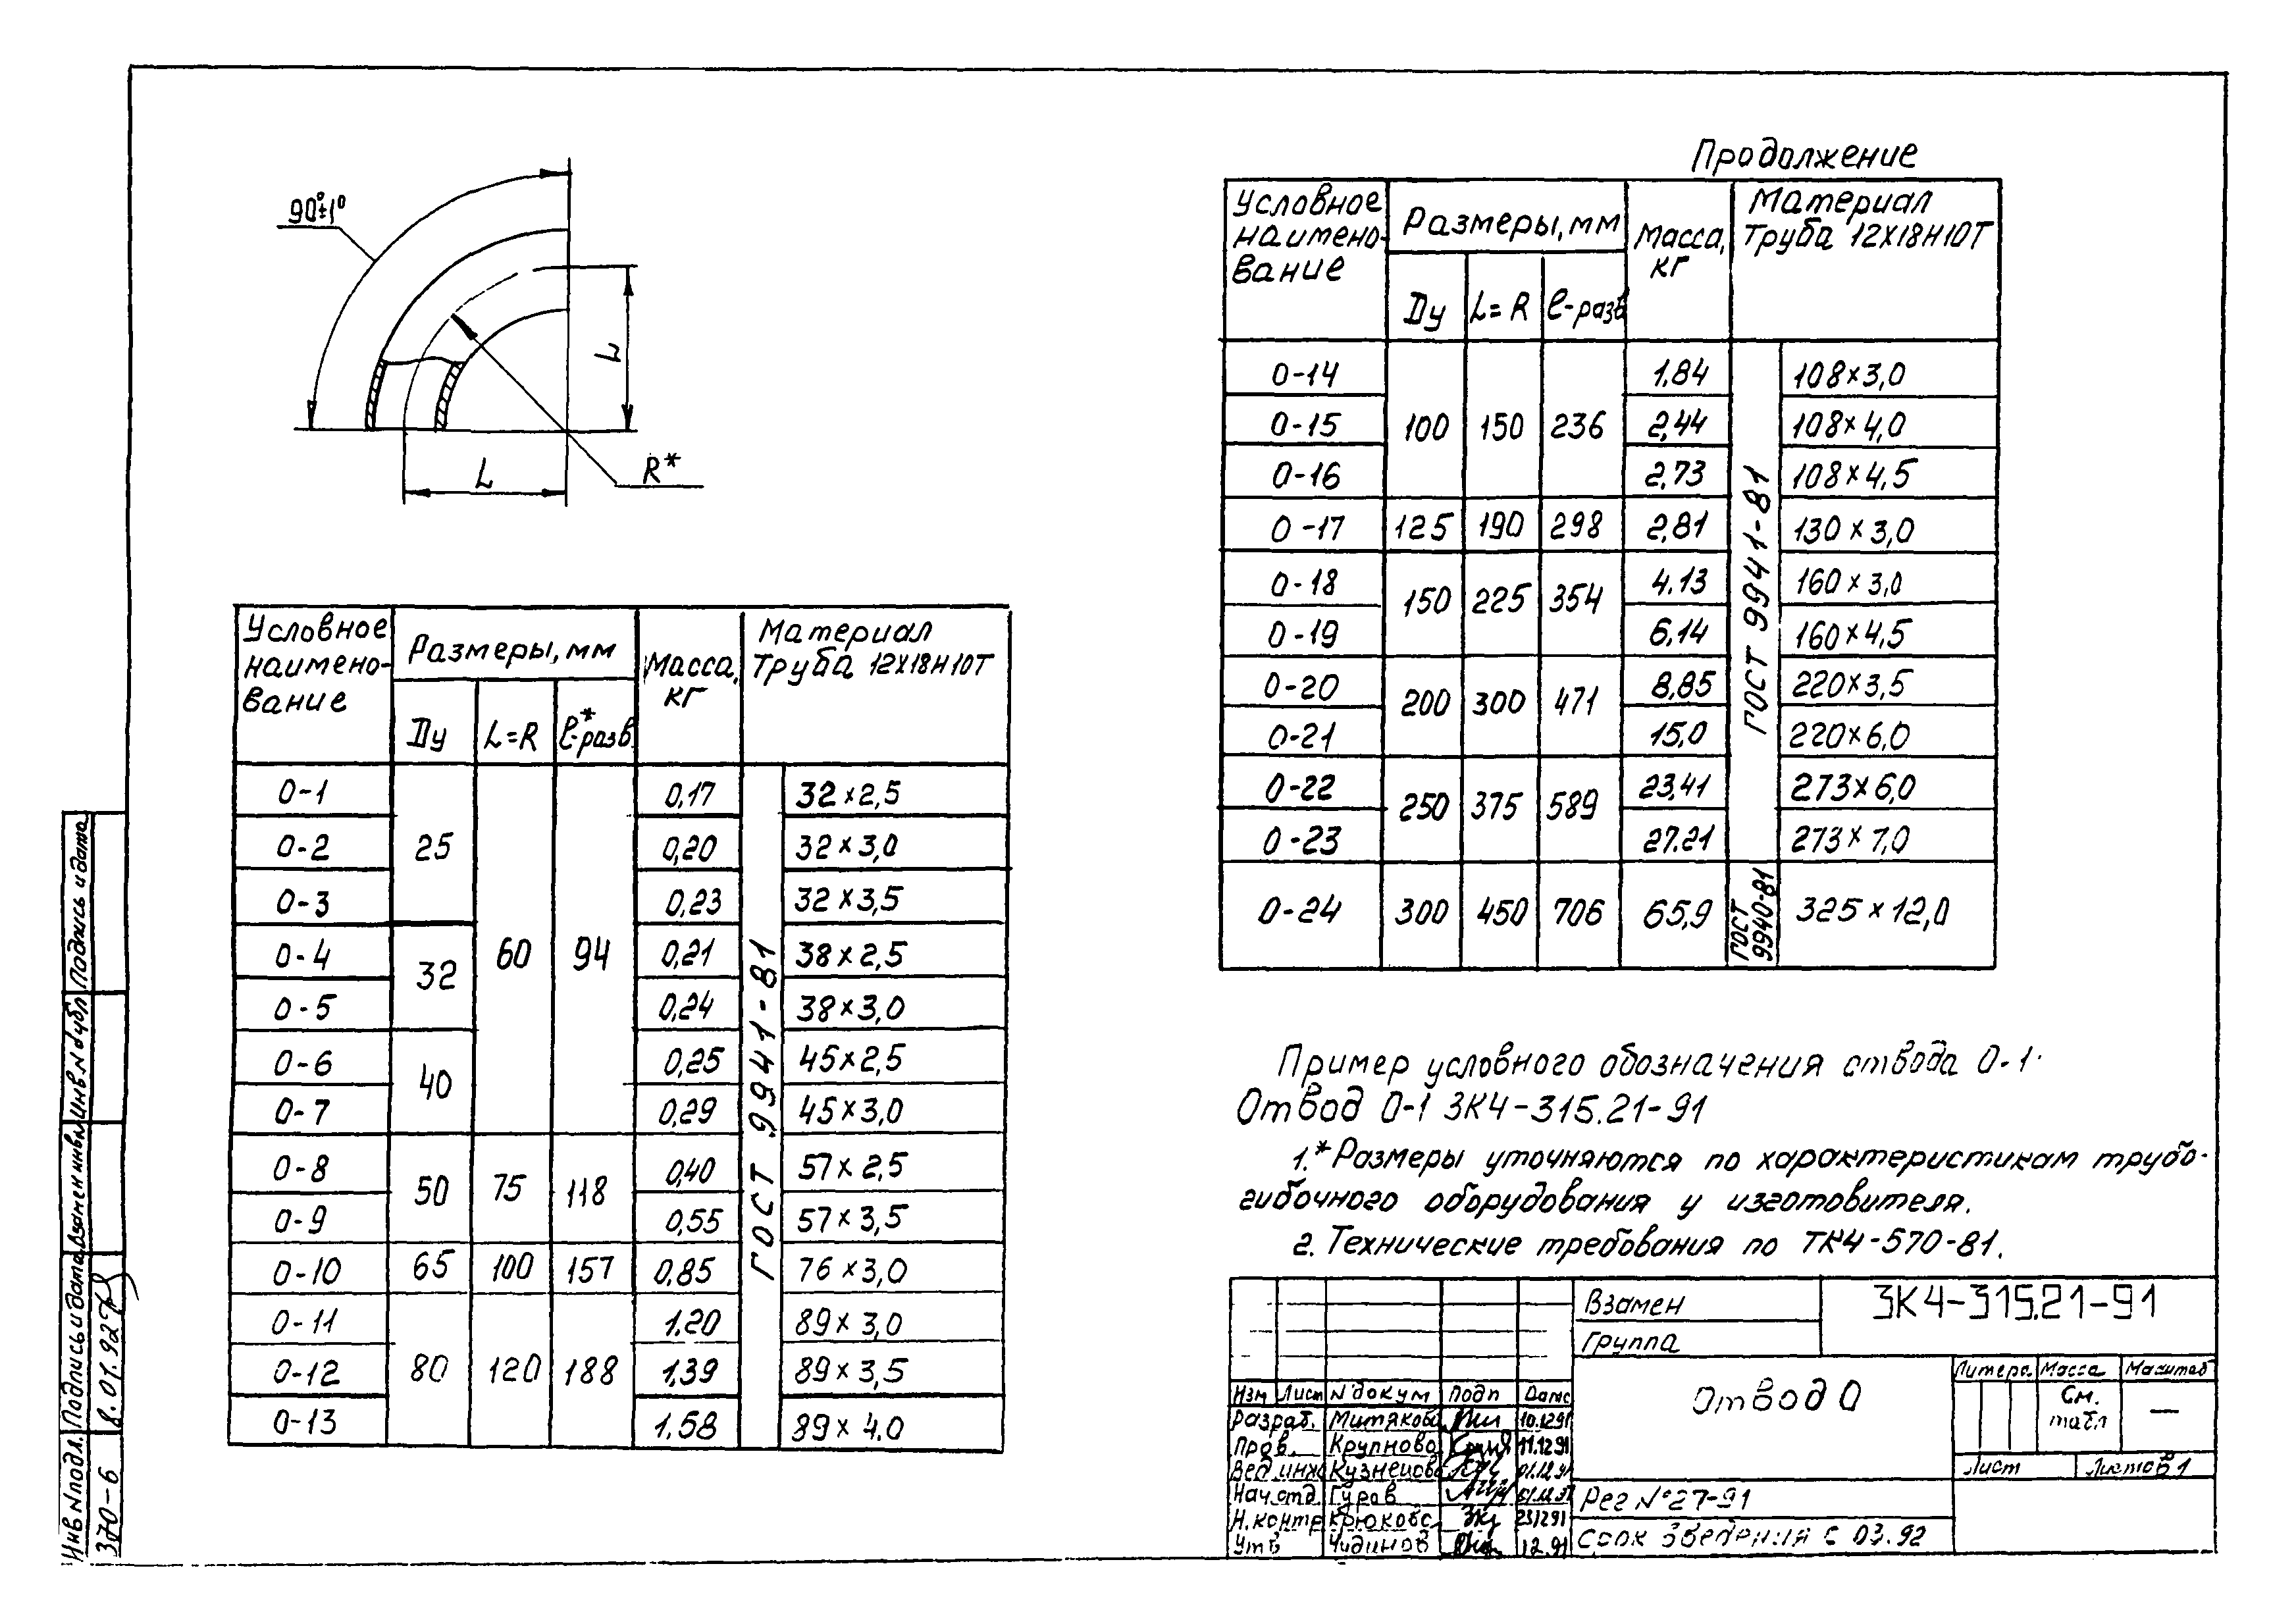 90°±1°
L
L
R*
Условное наименование | Размеры, мм | Масса, кг | Материал Труба 12Х18Н10Т
Dу | L=R | ℓ-разв.*
О-1 | 25 | 60 | 94 | 0,17 | ГОСТ 9941-81 | 32×2,5
О-2 | 0,20 | 32×3,0
О-3 | 0,23 | 32×3,5
О-4 | 32 | 0,21 | 38×2,5
О-5 | 0,24 | 38×3,0
О-6 | 40 | 0,25 | 45×2,5
О-7 | 0,29 | 45×3,0
О-8 | 50 | 75 | 118 | 0,40 | 57×2,5
О-9 | 0,55 | 57×3,5
О-10 | 65 | 100 | 157 | 0,85 | 76×3,0
О-11 | 80 | 120 | 188 | 1.20 | 89×3,0
О-12 | 1,39 | 89×3,5
О-13 | 1,58 | 89×4.0
Продолжение
Условное наименование | Размеры, мм | Масса, кг | Материал Труба 12Х18Н10Т
Dу | L=R | ℓ-разв
О-14 | 100 | 150 | 236 | 1,84 | ГОСТ 9941-81 | 108×3,0
О-15 | 2,44 | 108×4,0
О-16 | 2,73 | 108×4,5
О-17 | 125 | 190 | 298 | 2,81 | 130×3,0
О-18 | 150 | 225 | 354 | 4.13 | 160×3,0
О-19 | 6,14 | 160×4,5
О-20 | 200 | 300 | 471 | 8,85 | 220×3,5
О-21 | 15,0 | 220×6,0
О-22 | 250 | 375 | 589 | 23,41 | 273×6,0
О-23 | 27.21 | 273×7,0
О-24 | 300 | 450 | 706 | 65,9 | ГОСТ 9940-81 | 325×12,0
Пример условного обозначения отвода О-1:
Отвод О-1 ЗК4-315.21-91
1.* Размеры уточняются по характеристикам трубо-
гибочного оборудования у изготовителя.
2. Технические требования по ТК4-570-81.
Взамен
Группа
ЗК4-315.21-91
Отвод О
Литера. | Масса | Масштаб
См. табл | —
Лист | Листов 1
Рег №27-91
Срок введения с 03.92
Изм | Лист | N докум | Подп | Дата
Разраб. | Митякова | 10.12.91
Пров. | Крупнова | 11.12.91
Вед.инж | Кузнецова
Нач.отд | Гуров
Н.контр | Крюкова | 231291
Утв | Чудинов | 12.91
Инв.N подл. | Подпись и дата | Взамен инв.N | Инв.N дубл | Подпись и дата
370-6 | 8.01.92